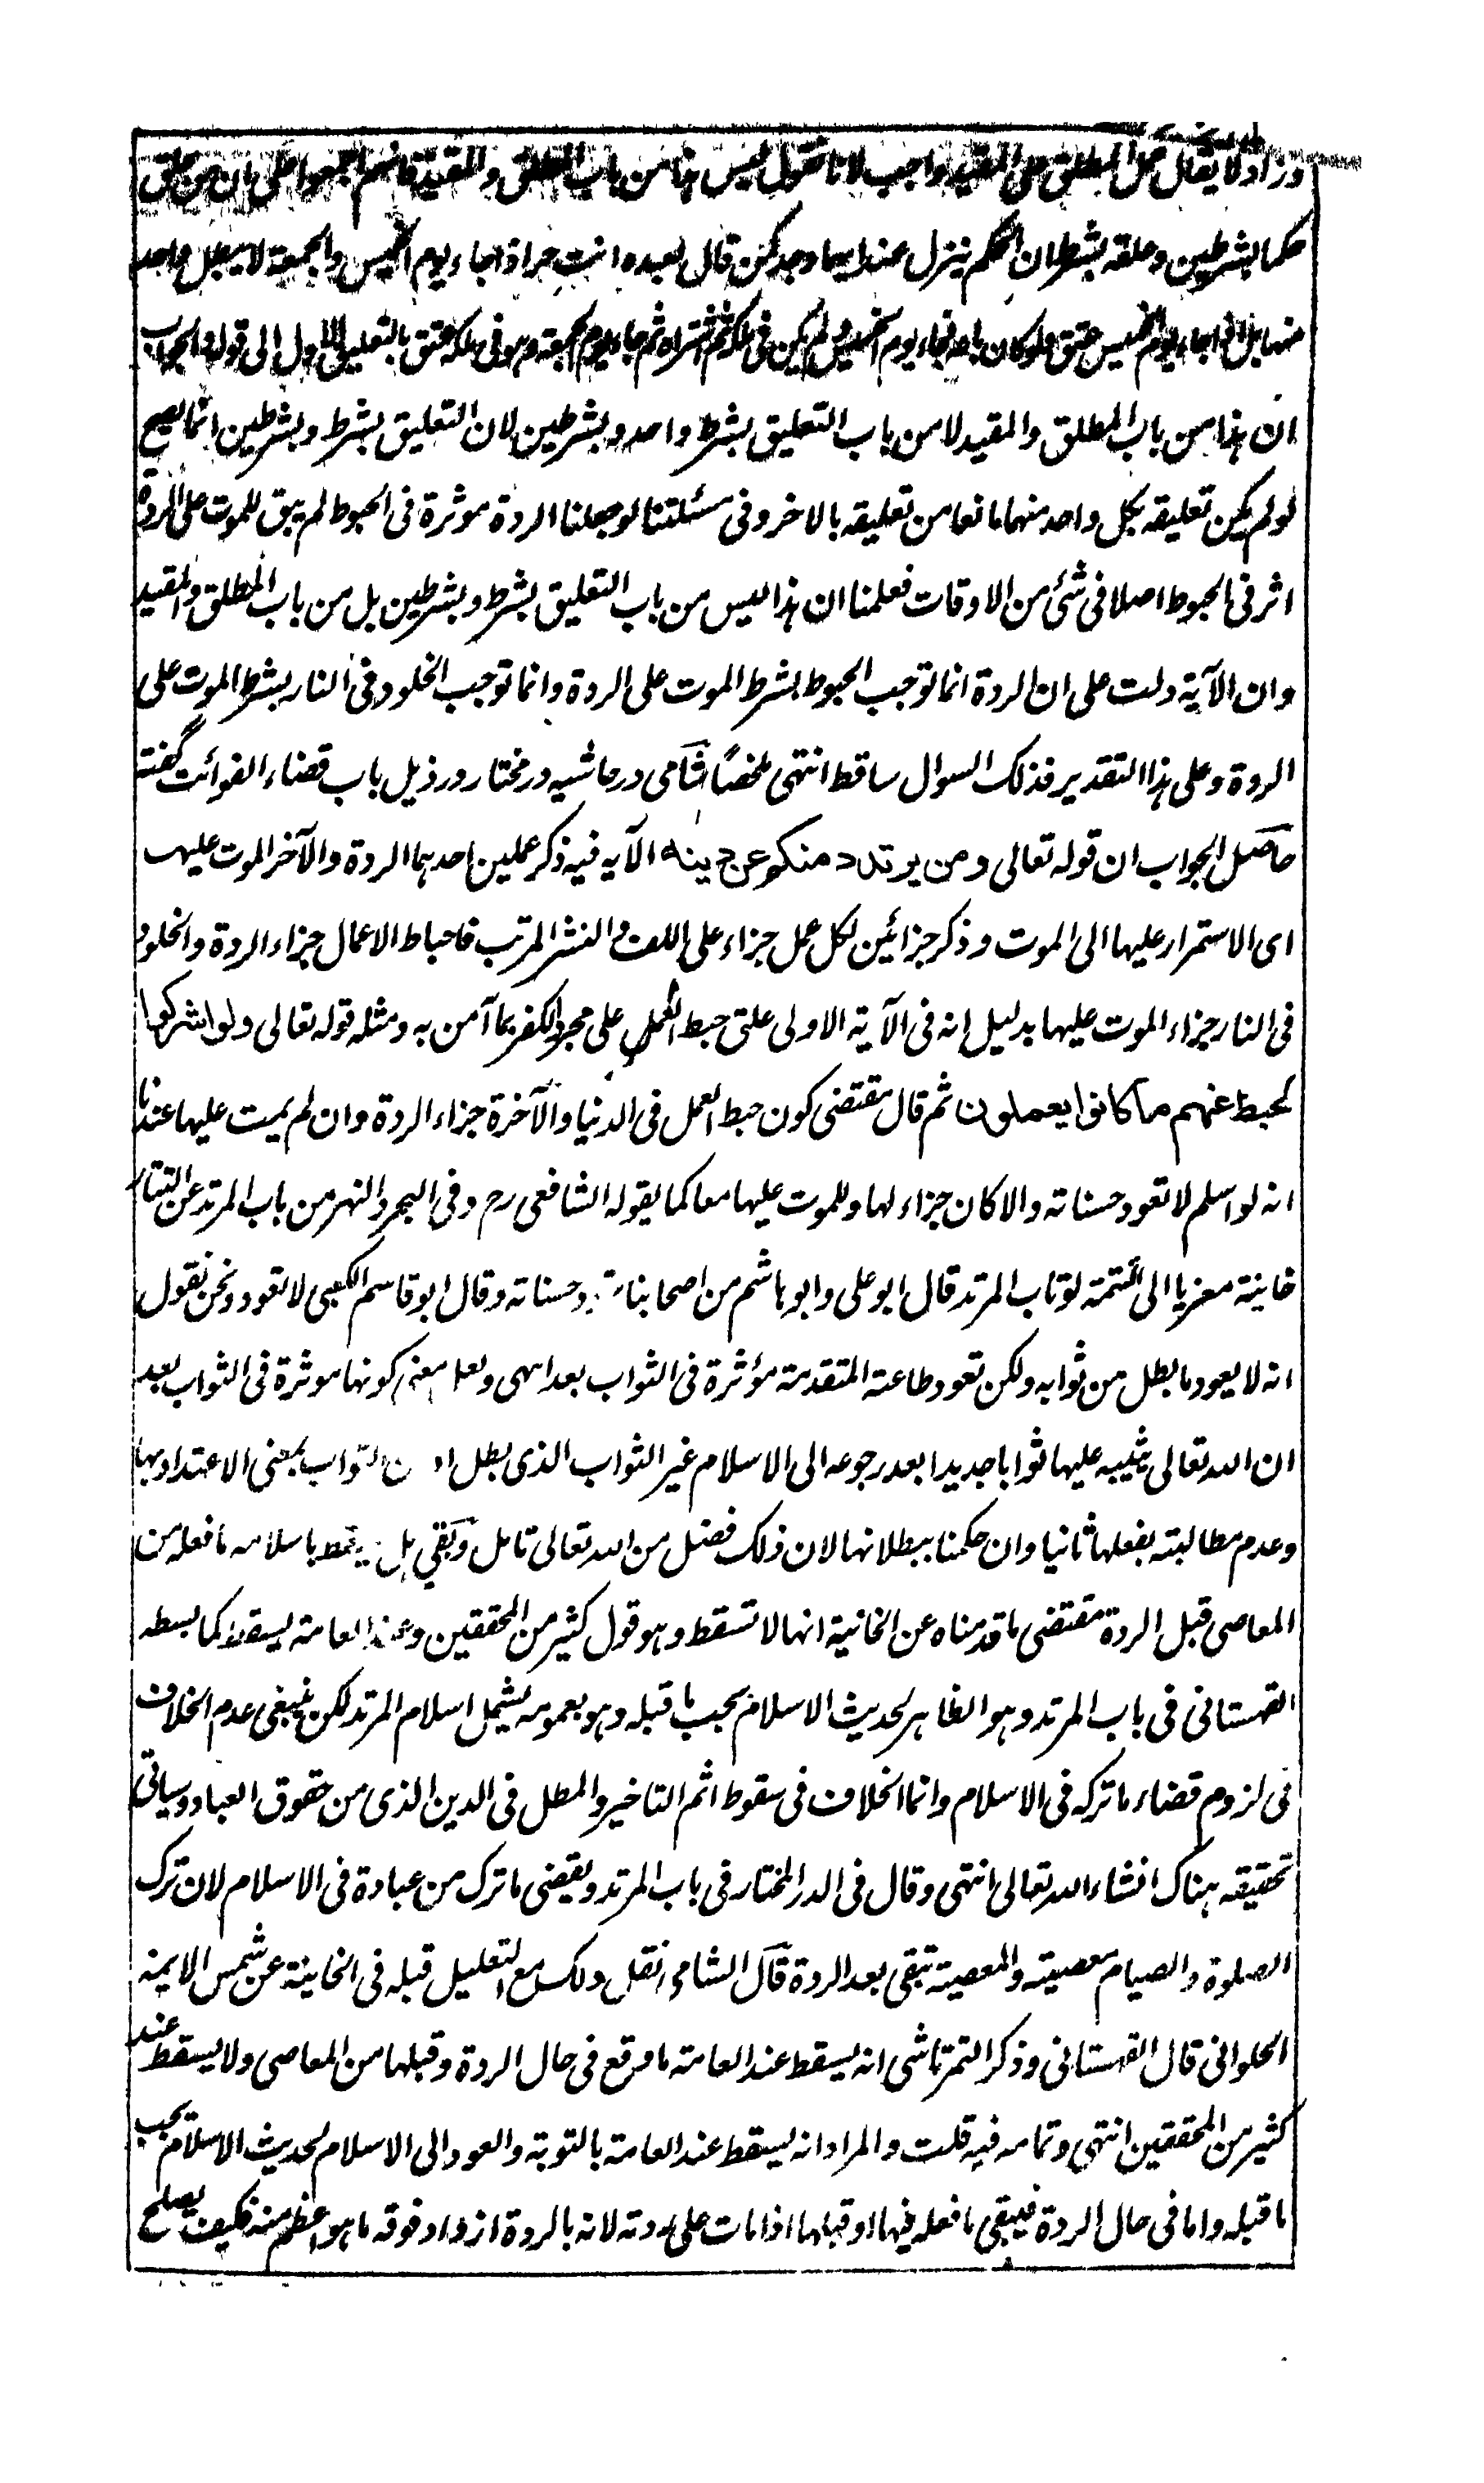 وزاد لا يقال حمل المطلق على المقيد واجب لانا نقول ليس هذا من باب المطلق والمقيد فانهم اجمعوا على ان من علق
حكما بشرطين وعلقه بشرط ان الحكم ينزل عند ايهما وجد كمن قال لعبده انت حر اذا جاء يوم الخميس والجمعة لا يبطل واحد
منهما بل اذا جاء يوم الخميس عتق ولو كان باعه فجاء يوم الخميس ولم يكن فى ملكه ثم اشتراه ثم جاء يوم الجمعة وهو فى ملكه عتق بالتعليق الاول الى قوله والجواب
ان هذا من باب المطلق والمقيد لا من باب التعليق بشرط واحد وبشرطين لان التعليق بشرط وبشرطين انما يصح
لو لم يكن تعليقه بكل واحد منهما مانعا من تعليقه بالاخر وفى مسئلتنا لو جعلنا الردة موثرة فى الحبوط لم يبق للموت على الردة
اثر فى الحبوط اصلا فى شئ من الاوقات فعلمنا ان هذا ليس من باب التعليق بشرط وبشرطين بل من باب المطلق والمقيد
وان الآية دلت على ان الردة انما توجب الحبوط بشرط الموت على الردة وانما توجب الخلود فى النار بشرط الموت على
الردة وعلى هذا التقدير فذلك السوال ساقط انتهى ملخصًا شامى در حاشيه در مختار در ذيل باب قضاء الفوائت گفته
حاصل الجواب ان قوله تعالى ومن يرتدد منكم عن دينه الآيه فيه ذكر عملين احدهما الردة والآخر الموت عليها
اى الاستمرار عليها الى الموت وذكر جزائين لكل عمل جزاء على اللف والنشر المرتب فاحباط الاعمال جزاء الردة والخلود
فى النار جزاء الموت عليها بدليل انه فى الآية الاولى علق حبط العمل على مجرد الكفر بما آمن به ومثله قوله تعالى ولو اشركوا
لحبط عنهم ما كانوا يعملون ثم قال مقتضى كون حبط العمل فى الدنيا والآخرة جزاء الردة وان لم يمت عليها عندنا
انه لو اسلم لا تعود حسناته والا كان جزاء لها وللموت عليها معا كما يقوله الشافعى رح وفى البحر والنهر من باب المرتد عن التتار
خانية معزيا الى التتمة لو تاب المرتد قال ابو على وابو هاشم من اصحابنا تعود حسناته وقال ابو قاسم الكعبى لا تعود ونحن نقول
انه لا يعود ما بطل من ثوابه ولكن تعود طاعته المتقدمة مؤثرة فى الثواب بعد انتهى ولعل معنى كونها موثرة فى الثواب بعد
ان الله تعالى يثيبه عليها ثوابا جديدا بعد رجوعه الى الاسلام غير الثواب الذى بطل او ان الثواب بمعنى الاعتداد بها
وعدم مطالبته بفعلها ثانيا وان حكمنا ببطلانها لان ذلك فضل من الله تعالى تامل وبقى هل يسقط باسلامه ما فعله من
المعاصى قبل الردة مقتضى ما قدمناه عن الخانية انها لا تسقط وهو قول كثير من المحققين وعند العامة يسقط كما بسطه
القهستانى فى باب المرتد وهو الظاهر لحديث الاسلام يجب ما قبله وهو بعمومه يشمل اسلام المرتد لكن ينبغى عدم الخلاف
فى لزوم قضاء ما تركه فى الاسلام وانما الخلاف فى سقوط اثم التاخير والمطل فى الدين الذى من حقوق العباد وسياتى
تحقيقه هناك انشاء الله تعالى انتهى وقال فى الدر المختار فى باب المرتد ويقضى ما ترك من عبادة فى الاسلام لان ترك
الصلوة والصيام معصية والمعصية تبقى بعد الردة قال الشامى نقل ذلك مع التعليل قبله فى الخانية عن شمس الايمة
الحلوانى قال القهستانى وذكر التمرتاشى انه يسقط عند العامة ما وقع فى حال الردة وقبلها من المعاصى ولا يسقط عند
كثير من المحققين انتهى وتمامه فيه قلت والمراد انه يسقط عند العامة بالتوبة والعود الى الاسلام لحديث الاسلام يجب
ما قبله واما فى حال الردة فيبقى ما فعله فيها او قبلها اذا مات على ردته لانه بالردة ازداد فوقه ما هو اعظم منه فكيف يصلح